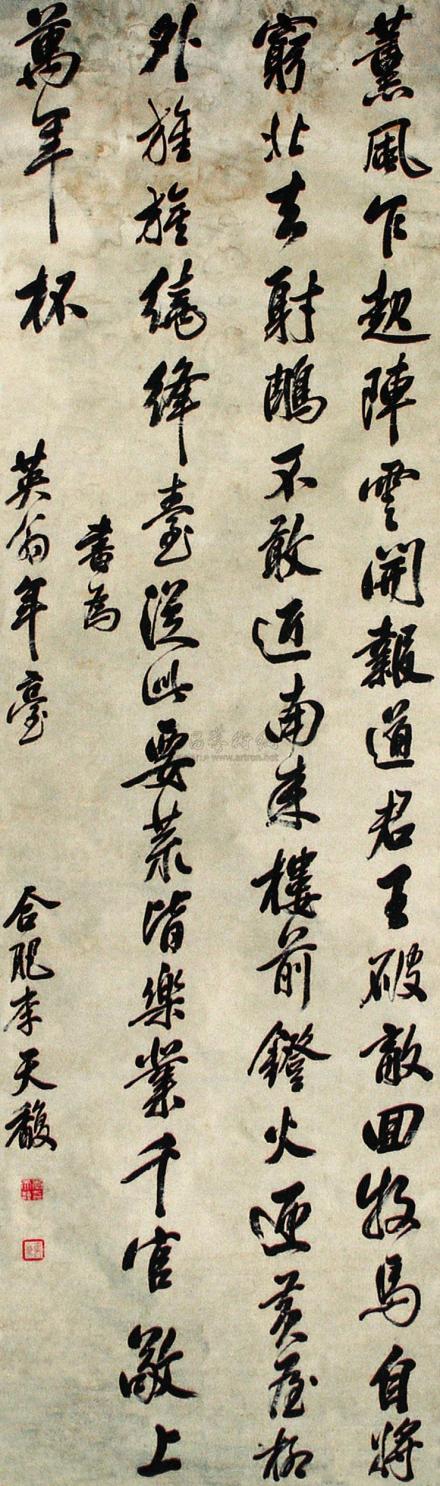 薰風乍起陣雲開報道君王破敵回牧馬自將
窮北去射鵰不敢近南來樓前鐙火迎黃屋柳
外旌旌繞絳臺從此要荒皆樂業千官敬上
萬年杯
書為
英翁年臺
合肥李天馥
www.artron.net